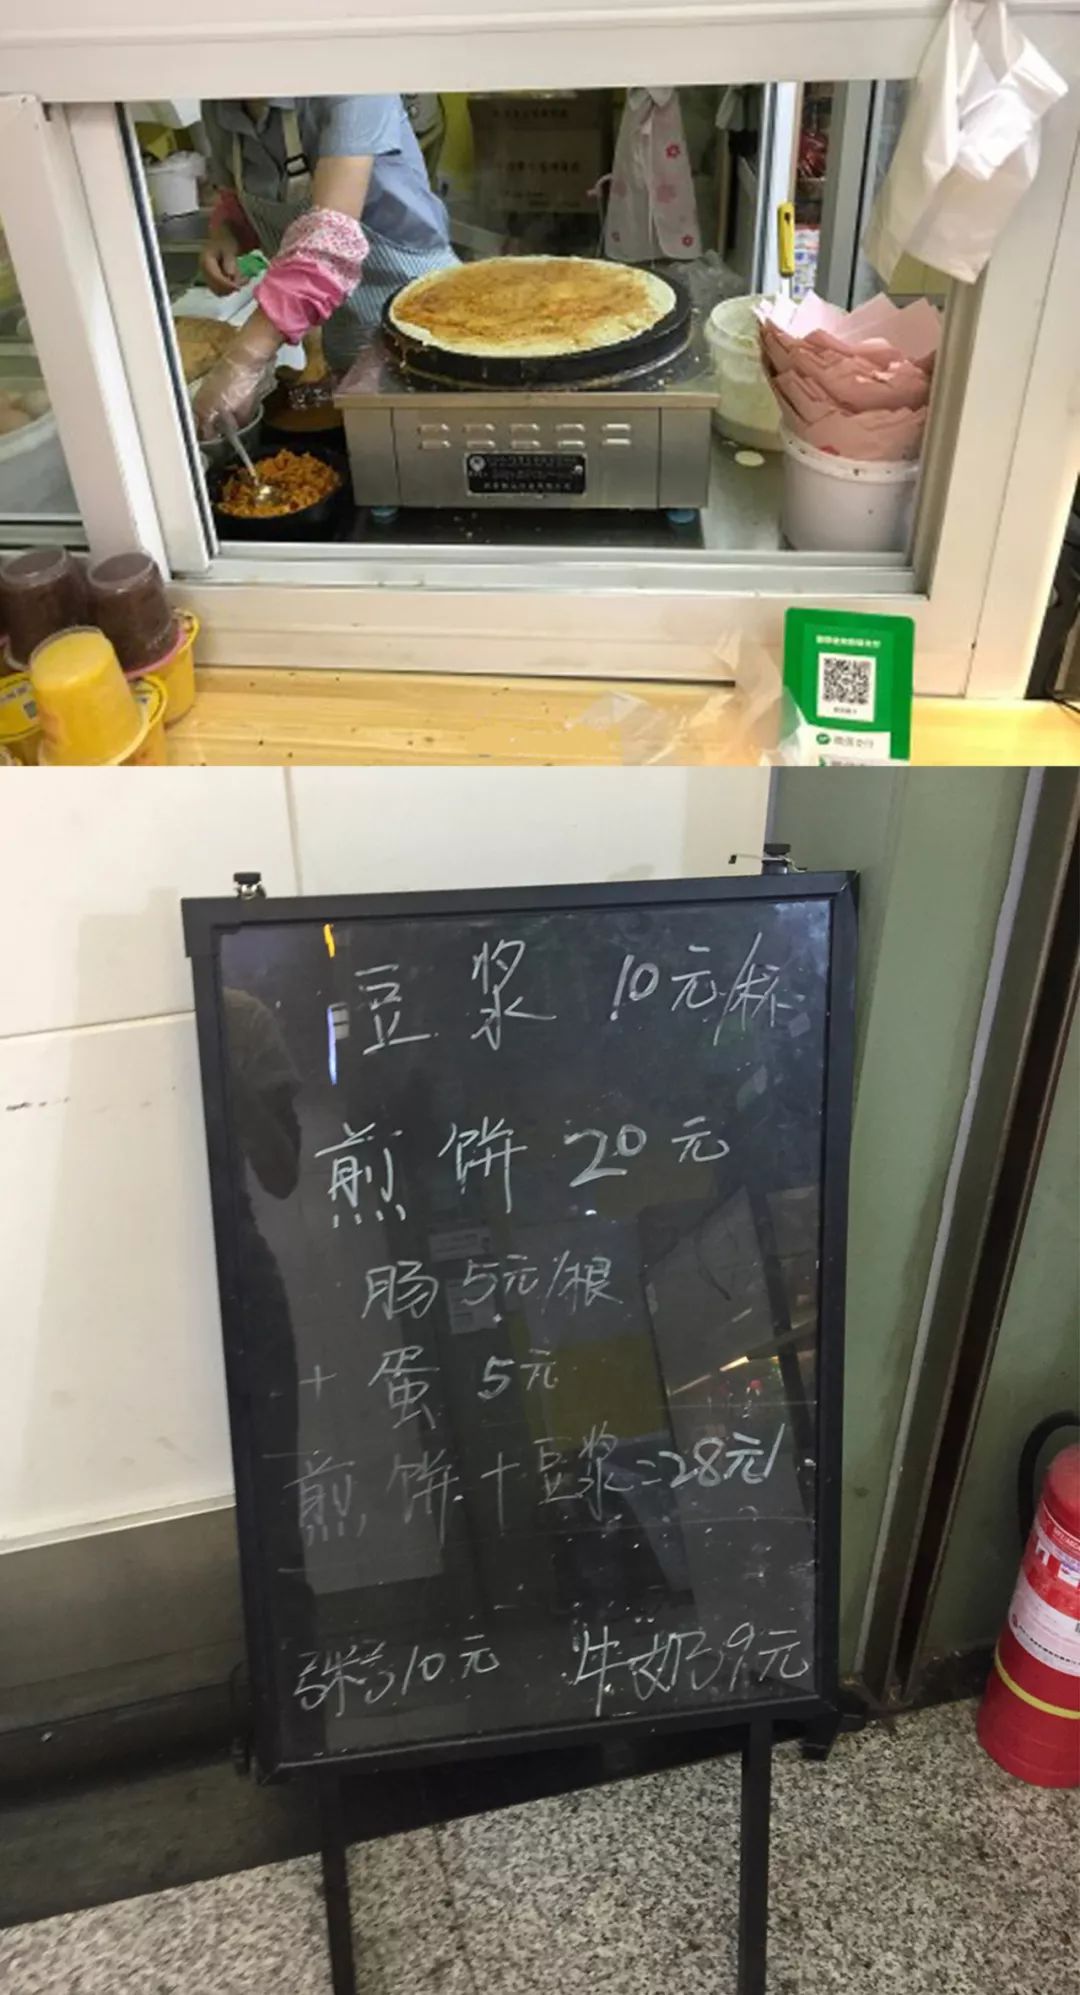 豆浆 10元/杯
煎饼 20元
肠 5元/根
+ 蛋 5元
煎饼+豆浆=28元/
粥10元 牛奶9元